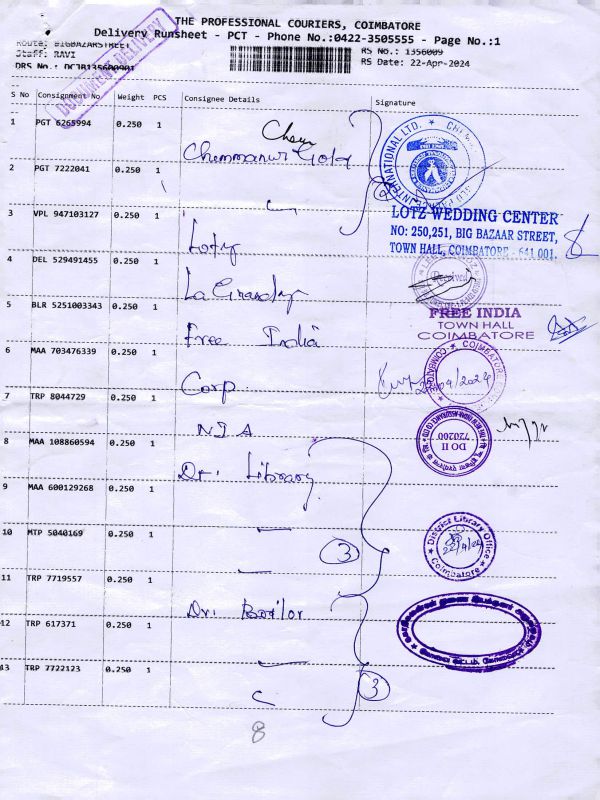 THE PROFESSIONAL COURIERS, COIMBATORE
Delivery Runsheet - PCT - Phone No.:0422-3505555 - Page No.:1
Route: BIGBAZARSTREET
RS No.: 1356009
Staff: RAVI
RS Date: 22-Apr-2024
DOCUMENT DELIVERY
S No Consignment No Weight PCS Consignee Details Signature
1 PGT 6265994 0.250 1 Chemmanur Gold
2 PGT 7222041 0.250 1
INTERNATIONAL LTD.
3 VPL 947103127 0.250 1 Lotz
LOTZ WEDDING CENTER
NO: 250,251, BIG BAZAAR STREET,
TOWN HALL, COIMBATORE - 641 001.
4 DEL 529491455 0.250 1
Received
5 BLR 5251003343 0.250 1 Free India
FREE INDIA
TOWN HALL
COIMBATORE
6 MAA 703476339 0.250 1 Corp
22/04/2024
7 TRP 8044729 0.250 1 NIA
DO II
720200
8 MAA 108860594 0.250 1 Dr. Library
9 MAA 600129268 0.250 1
10 MTP 5040169 0.250 1
3
District Library Office
22/4/24
Coimbatore
11 TRP 7719557 0.250 1
12 TRP 617371 0.250 1
13 TRP 7722123 0.250 1
3
8